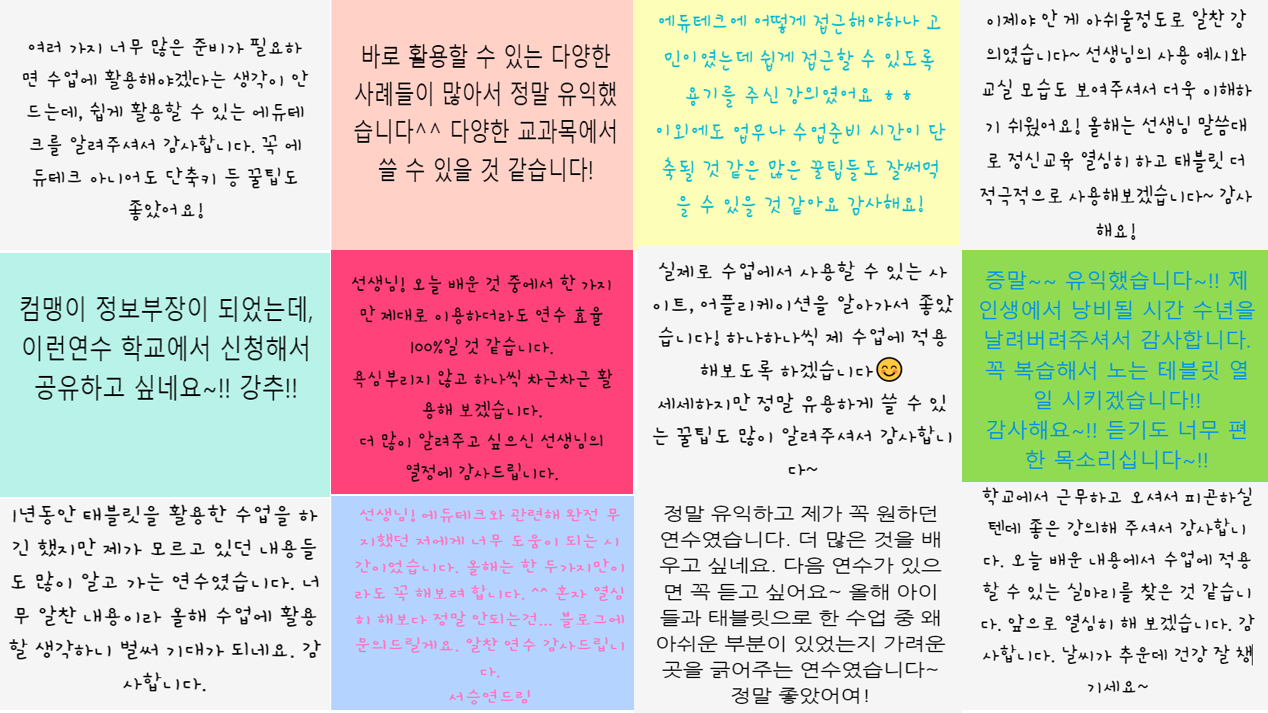 여러 가지 너무 많은 준비가 필요하
면 수업에 활용해야겠다는 생각이 안
드는데, 쉽게 활용할 수 있는 에듀테
크를 알려주셔서 감사합니다. 꼭 에
듀테크 아니어도 단축키 등 꿀팁도
좋았어요!
바로 활용할 수 있는 다양한
사례들이 많아서 정말 유익했
습니다^^ 다양한 교과목에서
쓸 수 있을 것 같습니다!
에듀테크에 어떻게 접근해야하나 고
민이였는데 쉽게 접근할 수 있도록
용기를 주신 강의였어요 ㅎㅎ
이외에도 업무나 수업준비 시간이 단
축될 것 같은 많은 꿀팁들도 잘써먹
을 수 있을 것 같아요 감사해요!
이제야 안 게 아쉬울정도로 알찬 강
의였습니다~ 선생님의 사용 예시와
교실 모습도 보여주셔서 더욱 이해하
기 쉬웠어요! 올해는 선생님 말씀대
로 정신교육 열심히 하고 태블릿 더
적극적으로 사용해보겠습니다~ 감사
해요!
컴맹이 정보부장이 되었는데,
이런연수 학교에서 신청해서
공유하고 싶네요~!! 강추!!
선생님! 오늘 배운 것 중에서 한 가지
만 제대로 이용하더라도 연수 효율
100%일 것 같습니다.
욕심부리지 않고 하나씩 차근차근 활
용해 보겠습니다.
더 많이 알려주고 싶으신 선생님의
열정에 감사드립니다.
실제로 수업에서 사용할 수 있는 사
이트, 어플리케이션을 알아가서 좋았
습니다! 하나하나씩 제 수업에 적용
해보도록 하겠습니다😊
세세하지만 정말 유용하게 쓸 수 있
는 꿀팁도 많이 알려주셔서 감사합니
다~
증말~~ 유익했습니다~!! 제
인생에서 낭비될 시간 수년을
날려버려주셔서 감사합니다.
꼭 복습해서 노는 테블릿 열
일 시키겠습니다!!
감사해요~!! 듣기도 너무 편
한 목소리십니다~!!
1년동안 태블릿을 활용한 수업을 하
긴 했지만 제가 모르고 있던 내용들
도 많이 알고 가는 연수였습니다. 너
무 알찬 내용이라 올해 수업에 활용
할 생각하니 벌써 기대가 되네요. 감
사합니다.
선생님! 에듀테크와 관련해 완전 무
지했던 저에게 너무 도움이 되는 시
간이었습니다. 올해는 한 두가지만이
라도 꼭 해보려 합니다. ^^ 혼자 열심
히 해보다 정말 안되는건... 블로그에
문의드릴게요. 알찬 연수 감사드립니
다.
서승연드림
정말 유익하고 제가 꼭 원하던
연수였습니다. 더 많은 것을 배
우고 싶네요. 다음 연수가 있으
면 꼭 듣고 싶어요~ 올해 아이
들과 태블릿으로 한 수업 중 왜
아쉬운 부분이 있었는지 가려운
곳을 긁어주는 연수였습니다~
정말 좋았어여!
학교에서 근무하고 오셔서 피곤하실
텐데 좋은 강의해 주셔서 감사합니
다. 오늘 배운 내용에서 수업에 적용
할 수 있는 실마리를 찾은 것 같습니
다. 앞으로 열심히 해 보겠습니다. 감
사합니다. 날씨가 추운데 건강 잘 챙
기세요~